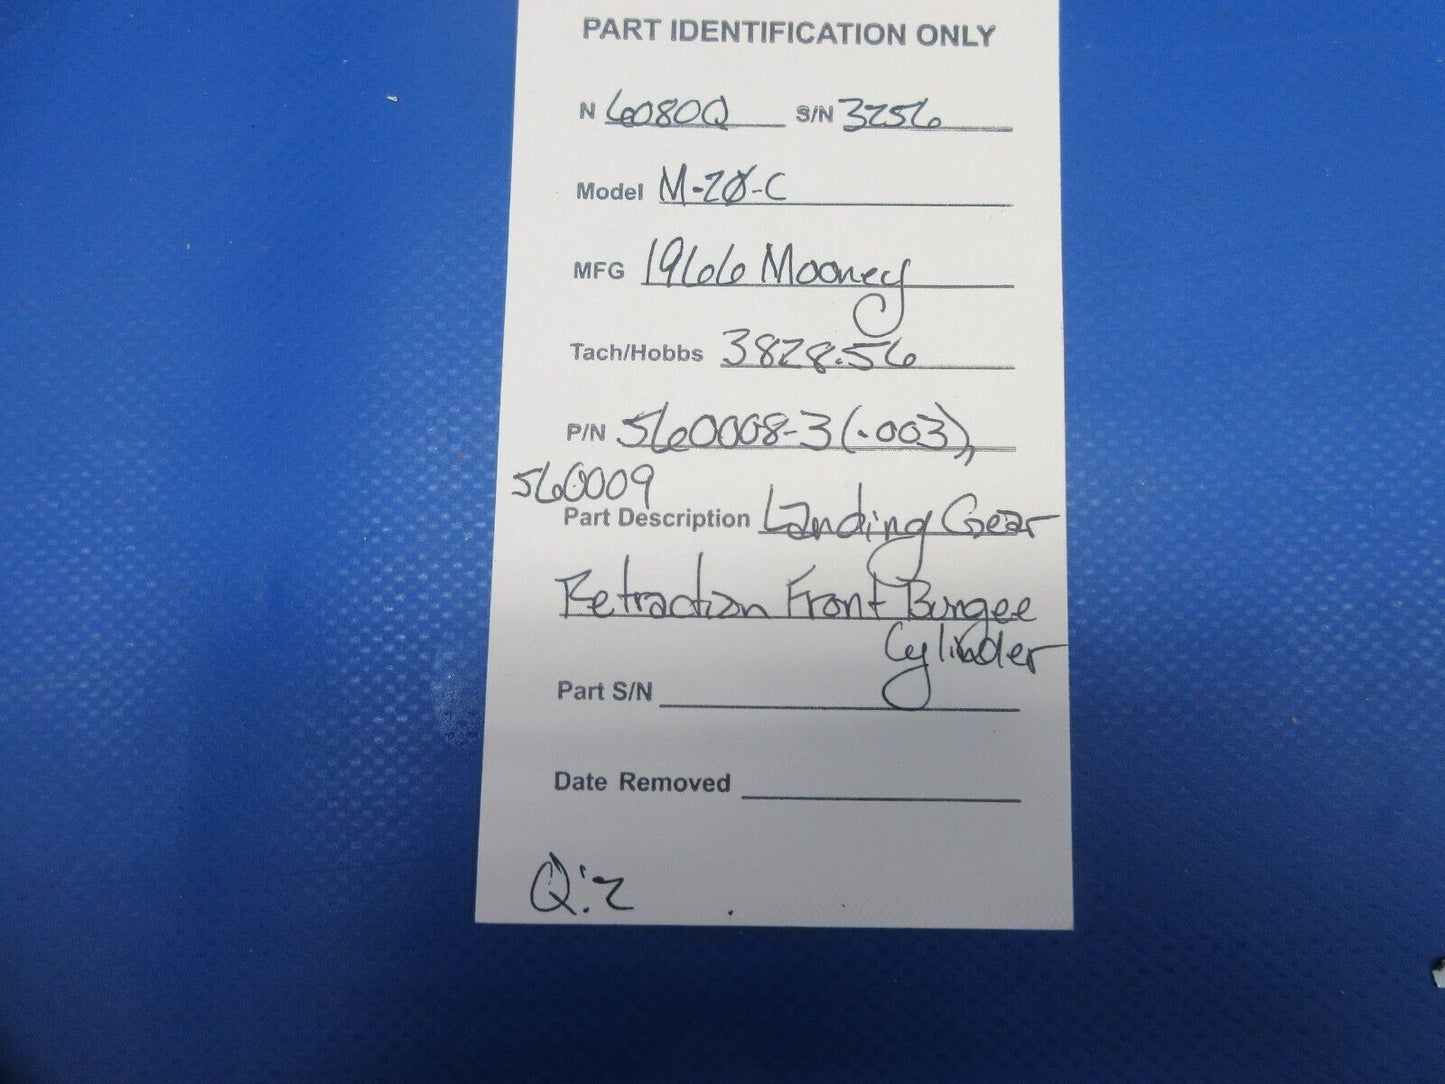 PART IDENTIFICATION ONLY
N 6080Q S/N 3256
Model M-20-C
MFG 1966 Mooney
Tach/Hobbs 3828.56
P/N 560008-3(.003),
560009
Part Description Landing Gear
Retraction Front Bungee
Cylinder
Part S/N
Date Removed
Q:2